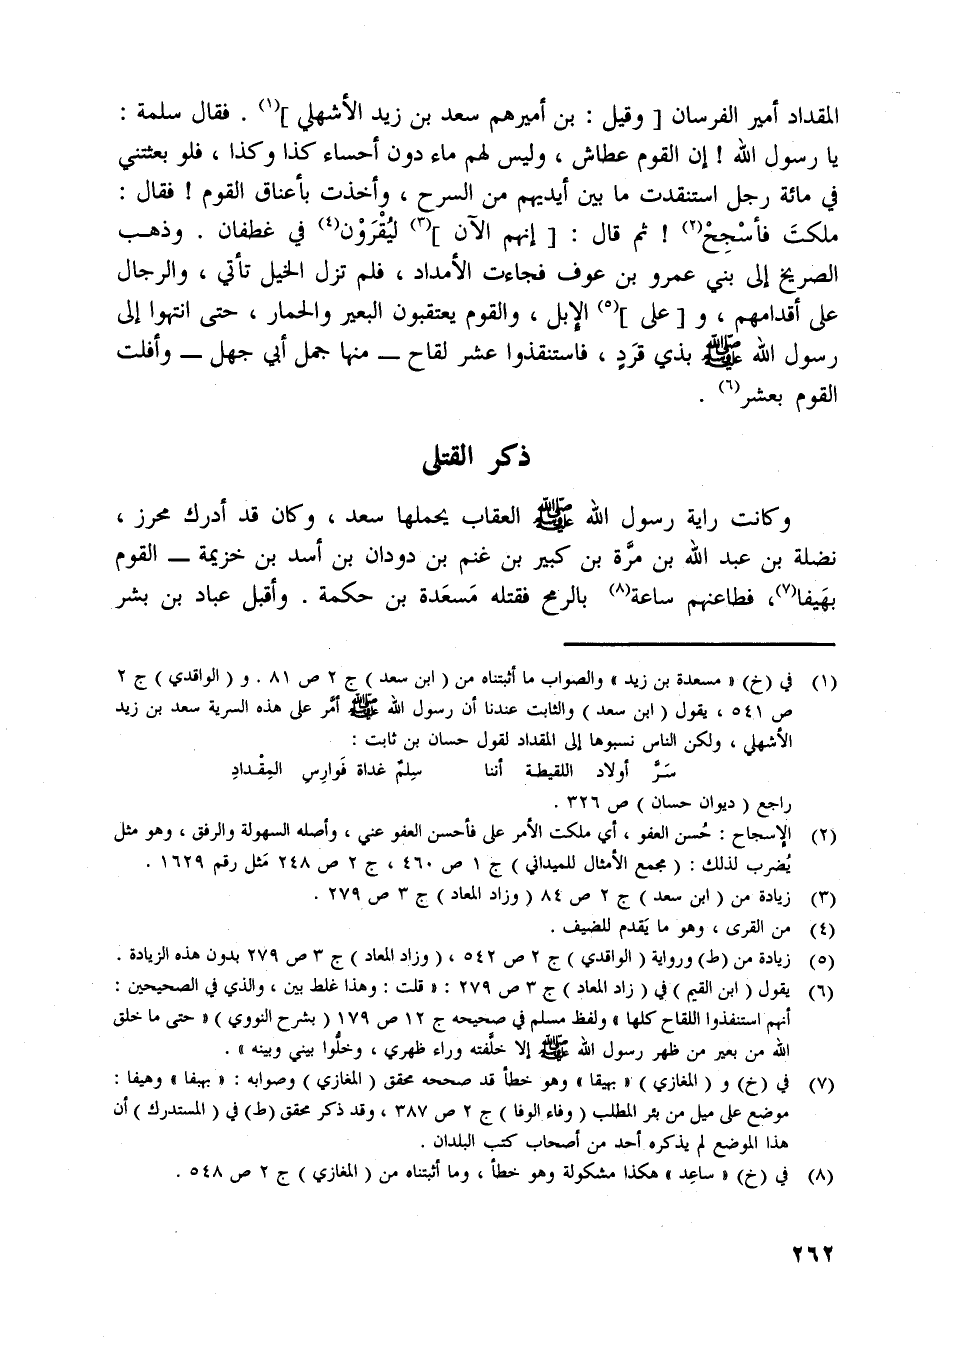 المقداد أمير الفرسان [ وقيل : بن أميرهم سعد بن زيد الأشهلي ](١) . فقال سلمة :
يا رسول الله ! إن القوم عطاش ، وليس لهم ماء دون أحساء كذا وكذا ، فلو بعثتني
في مائة رجل استنقدت ما بين أيديهم من السرح ، وأخذت بأعناق القوم ! فقال :
ملكتَ فأسْجِحْ(٢) ! ثم قال : [ إنهم الآن ](٣) ليُقْرَوْن(٤) في غطفان . وذهب
الصريخ إلى بني عمرو بن عوف فجاءت الأمداد ، فلم تزل الخيل تأتي ، والرجال
على أقدامهم ، و [ على ](٥) الإبل ، والقوم يعتقبون البعير والحمار ، حتى انتهوا إلى
رسول الله ﷺ بذي قَرَدٍ ، فاستنقذوا عشر لقاح ــ منها جمل أبي جهل ــ وأفلت
القوم بعشر(٦) .
ذكر القتلى
وكانت راية رسول الله ﷺ العقاب يحملها سعد ، وكان قد أدرك محرز ،
نضلة بن عبد الله بن مرَّة بن كبير بن غنم بن دودان بن أسد بن خزيمة ــ القوم
بهَيفا(٧)، فطاعنهم ساعة(٨) بالرمح فقتله مَسعَدة بن حكمة . وأقبل عباد بن بشر
(١) في (خ) « مسعدة بن زيد » والصواب ما أثبتناه من ( ابن سعد ) ج ٢ ص ٨١ . و ( الواقدي ) ج ٢
ص ٥٤١ ، يقول ( ابن سعد ) والثابت عندنا أن رسول الله ﷺ أمَّر على هذه السرية سعد بن زيد
الأشهلي ، ولكن الناس نسبوها إلى المقداد لقول حسان بن ثابت :
سَرَّ أولاد اللقيطة أننا سِلِمٌ غداة فَوارِسِ المِقْدادِ
راجع ( ديوان حسان ) ص ٣٢٦ .
(٢) الإسجاح : حُسن العفو ، أي ملكت الأمر على فأحسن العفو عني ، وأصله السهولة والرفق ، وهو مثل
يُضرب لذلك : ( مجمع الأمثال للميداني ) ج ١ ص ٤٦٠ ، ج ٢ ص ٢٤٨ مَثل رقم ١٦٢٩ .
(٣) زيادة من ( ابن سعد ) ج ٢ ص ٨٤ ( وزاد المعاد ) ج ٣ ص ٢٧٩ .
(٤) من القرى ، وهو ما يَقدم للضيف .
(٥) زيادة من (ط) ورواية ( الواقدي ) ج ٢ ص ٥٤٢ ، ( وزاد المعاد ) ج ٣ ص ٢٧٩ بدون هذه الزيادة .
(٦) يقول ( ابن القيم ) في ( زاد المعاد ) ج ٣ ص ٢٧٩ : « قلت : وهذا غلط بين ، والذي في الصحيحين :
أنهم استنفذوا اللقاح كلها » ولفظ مسلم في صحيحه ج ١٢ ص ١٧٩ ( بشرح النووي ) « حتى ما خلق
الله من بعير من ظهر رسول الله ﷺ إلا خلَّفته وراء ظهري ، وخلُّوا بيني وبينه » .
(٧) في (خ) و ( المغازي ) « بهيقا » وهو خطأ قد صححه محقق ( المغازي ) وصوابه : « بهيفا » وهيفا :
موضع على ميل من بئر المطلب ( وفاء الوفا ) ج ٢ ص ٣٨٧ ، وقد ذكر محقق (ط) في ( المستدرك ) أن
هذا الموضع لم يذكره أحد من أصحاب كتب البلدان .
(٨) في (خ) « ساعِد » هكذا مشكولة وهو خطأ ، وما أثبتناه من ( المغازي ) ج ٢ ص ٥٤٨ .
٢٦٢